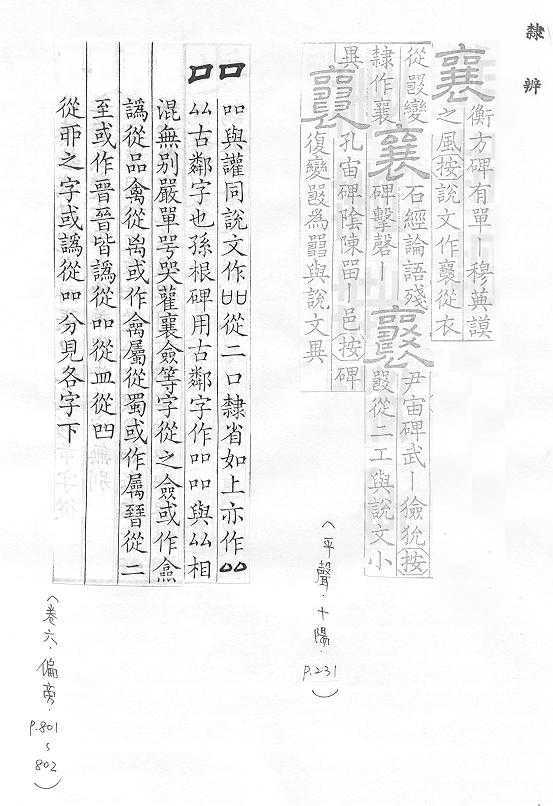 隸辨
襄 衡方碑有單丨穆典謨
之風按說文作襄從衣
從㗊變 襄 石經論語殘 尹宙碑武丨獫狁按
隸作襄 碑擊磬丨 襄 㗊從二工與說文小
異 襄 孔宙碑陰陳留丨邑按碑
復變㗊為㗊與說文異
(平聲.十陽. P.231)
吅 吅與讙同說文作吅從二口隸省如上亦作
厸古鄰字也孫根碑用古鄰字作吅吅與厸相
混無別嚴單咢哭雚襄僉等字從之僉或作
譌從品禽從禸或作禽屬從蜀或作屬晉從二
至或作晉晉皆譌從吅從皿從
從之字或譌從吅分見各字下
(卷六.偏旁. P.801~802)